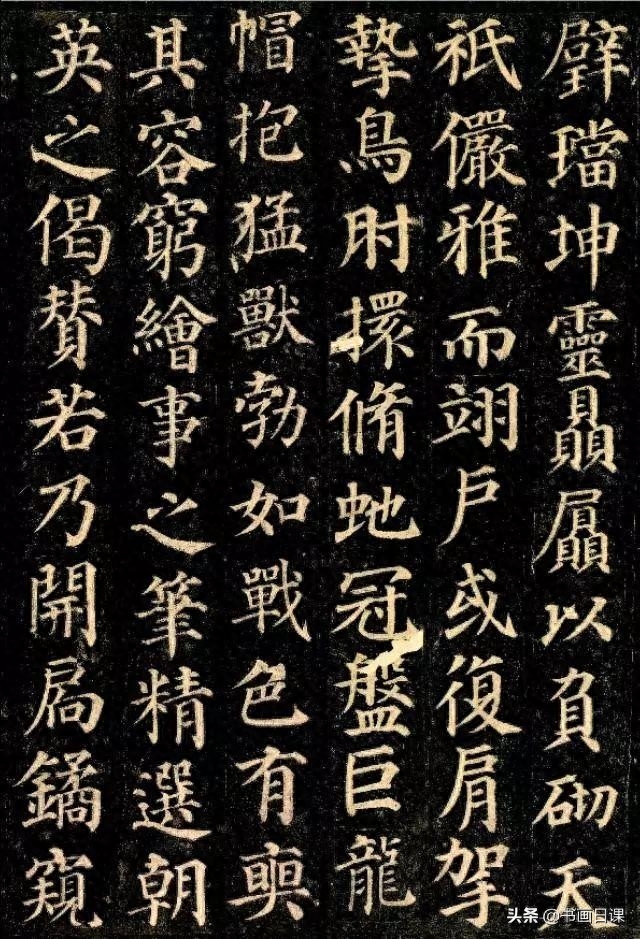 璧璫坤靈贔屭以負砌天
祇儼雅而翊户或復肩挐
摯鳥肘擐脩虵冠盤巨龍
帽抱猛獸勃如戰色有奭
其容窮繪事之筆精選朝
英之偈賛若乃開扃鐍窺
头条 @书画日课